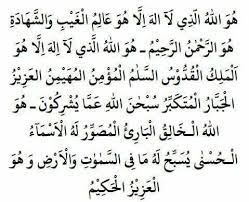 هُوَ اللهُ الَّذِي لَآ اِلهَ اِلَّا هُوَ عَالِمُ الْغَيْبِ وَالشَّهَادَةِ
هُوَ الرَّحْمٰنُ الرَّحِيْمُ ـ هُوَ اللهُ الَّذِي لَآ اِلهَ اِلَّا هُوَ
اَلْمَلِكُ الْقُدُّوْسُ السَّلٰمُ الْمُؤْمِنُ الْمُهَيْمِنُ الْعَزِيْزُ
الْجَبَّارُ الْمُتَكَبِّرُ سُبْحٰنَ اللهِ عَمَّا يُشْرِكُوْنَ ـ هُوَ
اللهُ الْخَالِقُ الْبَارِئُ الْمُصَوِّرُ لَهُ الْاَسْمَآءُ
الْحُسْنٰى يُسَبِّحُ لَهُ مَا فِى السَّمٰوٰتِ وَالْاَرْضِ وَ هُوَ
الْعَزِيْزُ الْحَكِيْمُ